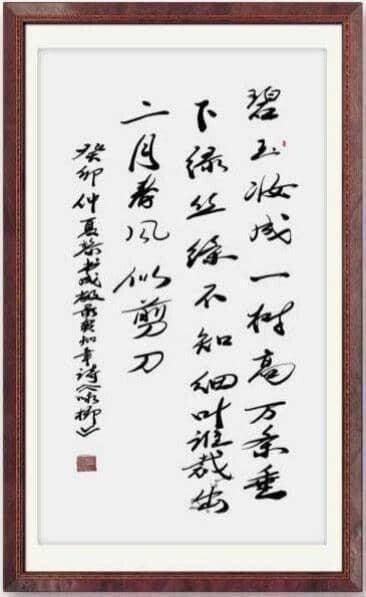 碧玉妆成一树高万条垂
下绿丝绦不知细叶谁裁出
二月春风似剪刀
癸卯仲夏贺知章诗《咏柳》